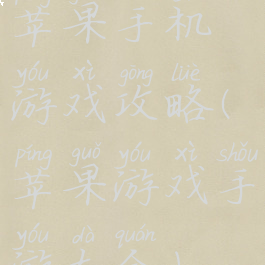 苹果手机
yóu xì gōng lüè
游戏攻略(
píng guǒ yóu xì shǒu
苹果游戏手
yóu dà quán